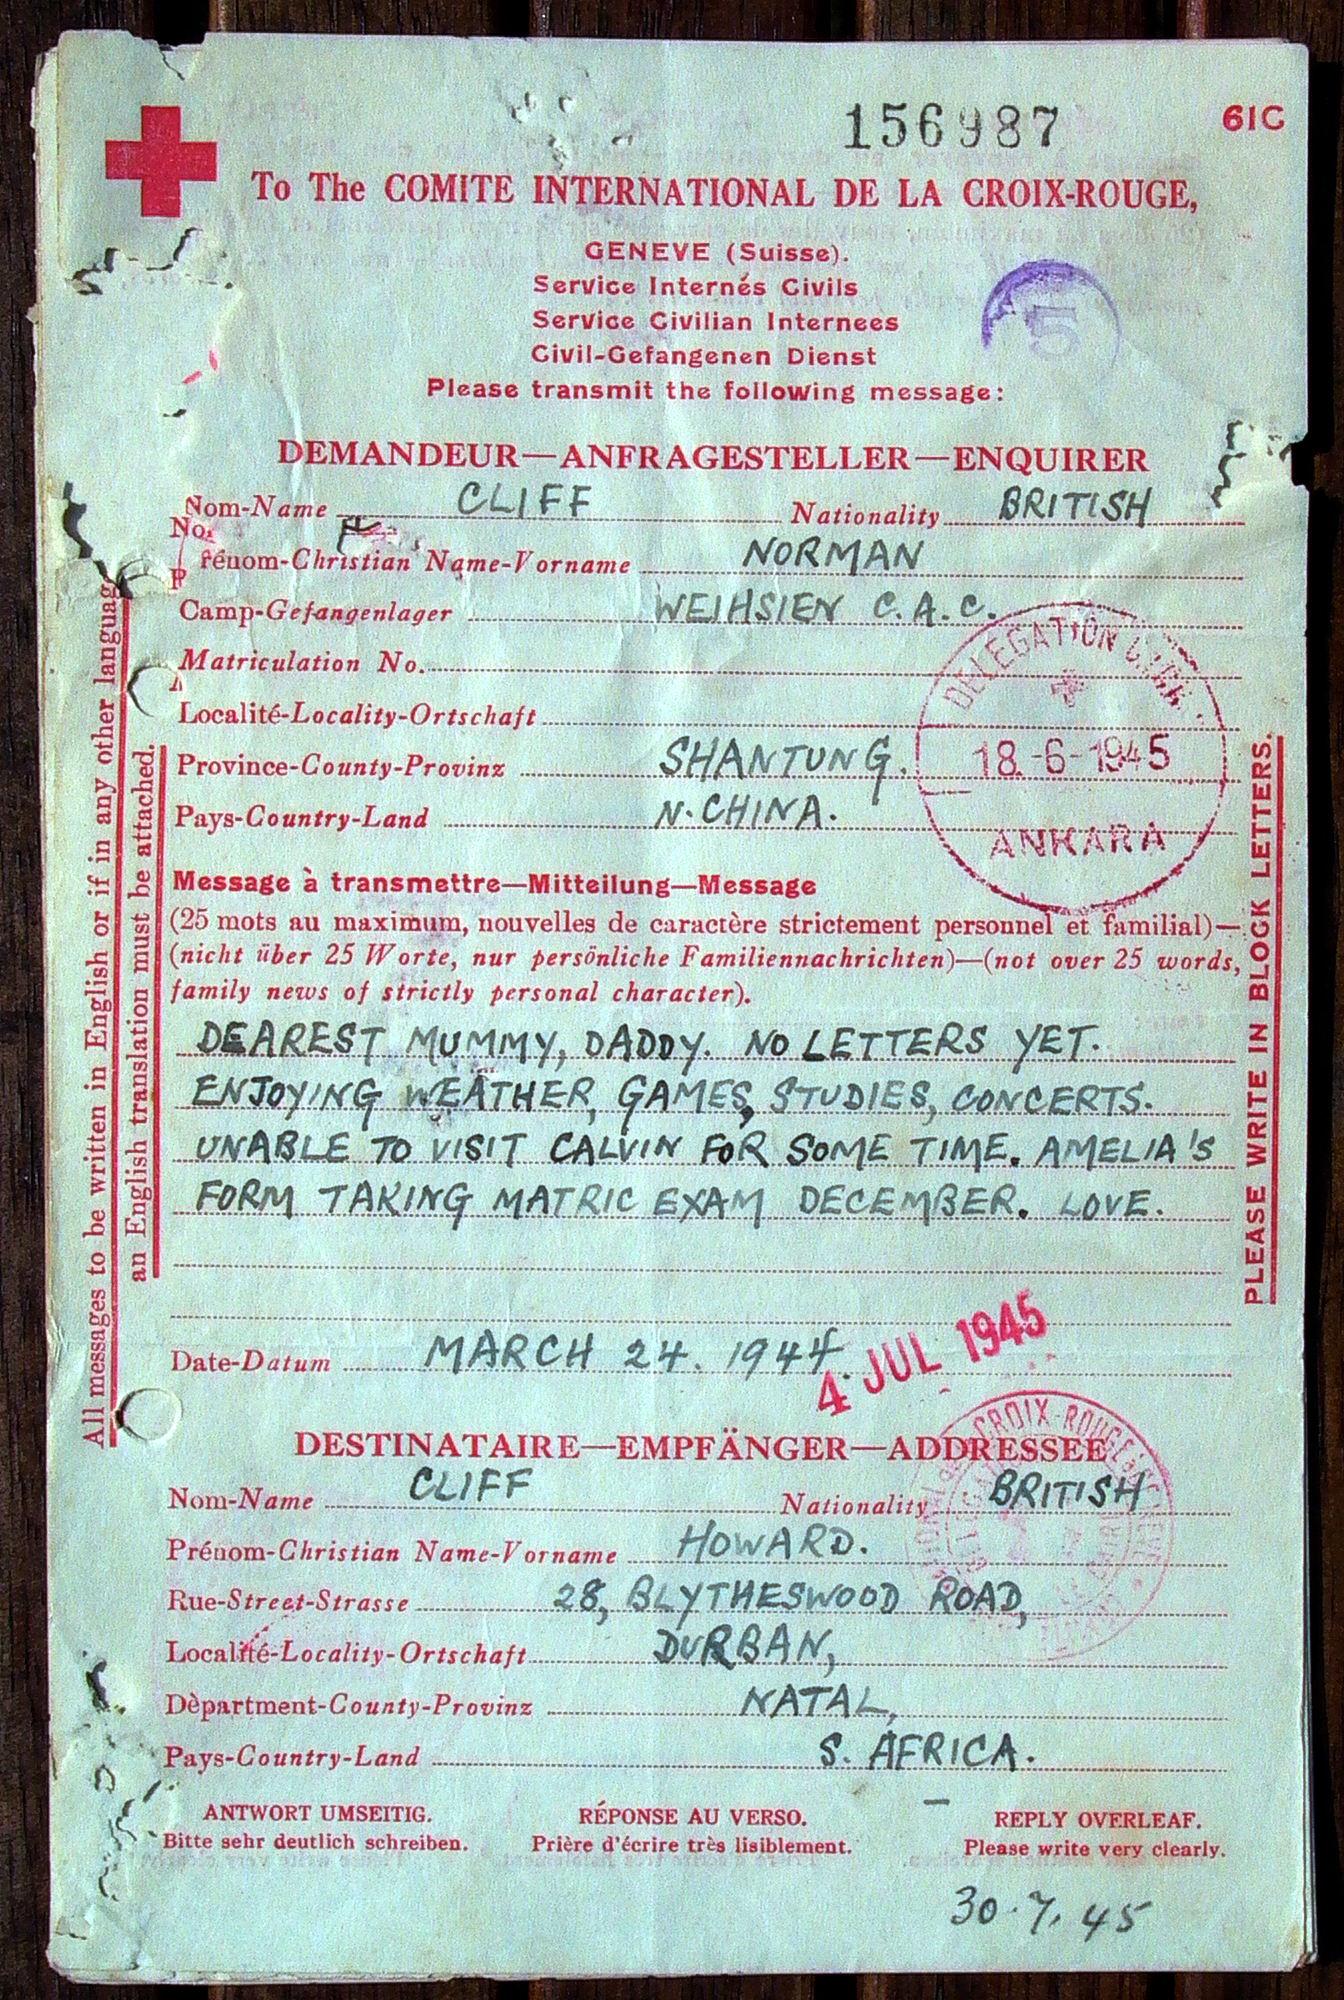 156987
61C
To The COMITE INTERNATIONAL DE LA CROIX-ROUGE,
GENEVE (Suisse).
Service Internés Civils
Service Civilian Internees
Civil-Gefangenen Dienst
5
Please transmit the following message:
DEMANDEUR—ANFRAGESTELLER—ENQUIRER
Nom-Name CLIFF Nationality BRITISH
No.
Prénom-Christian Name-Vorname NORMAN
Camp-Gefangenlager WEIHSIEN C.A.C.
Matriculation No.
Localité-Locality-Ortschaft
Province-County-Provinz SHANTUNG.
Pays-Country-Land N. CHINA.
DELEGATION
18-6-1945
ANKARA
Message à transmettre—Mitteilung—Message
(25 mots au maximum, nouvelles de caractère strictement personnel et familial)—
(nicht über 25 Worte, nur persönliche Familiennachrichten)—(not over 25 words,
family news of strictly personal character).
DEAREST MUMMY, DADDY. NO LETTERS YET.
ENJOYING WEATHER, GAMES, STUDIES, CONCERTS.
UNABLE TO VISIT CALVIN FOR SOME TIME. AMELIA'S
FORM TAKING MATRIC EXAM DECEMBER. LOVE.
Date-Datum MARCH 24. 1944.
4 JUL 1945
All messages to be written in English or if in any other languag
an English translation must be attached.
PLEASE WRITE IN BLOCK LETTERS.
DESTINATAIRE—EMPFÄNGER—ADDRESSEE
Nom-Name CLIFF Nationality BRITISH
Prénom-Christian Name-Vorname HOWARD.
Rue-Street-Strasse 28, BLYTHESWOOD ROAD,
Localité-Locality-Ortschaft DURBAN,
Dèpartment-County-Provinz NATAL,
Pays-Country-Land S. AFRICA.
CROIX-ROUGE
ANTWORT UMSEITIG. RÉPONSE AU VERSO. REPLY OVERLEAF.
Bitte sehr deutlich schreiben. Prière d'écrire très lisiblement. Please write very clearly.
30.7.45